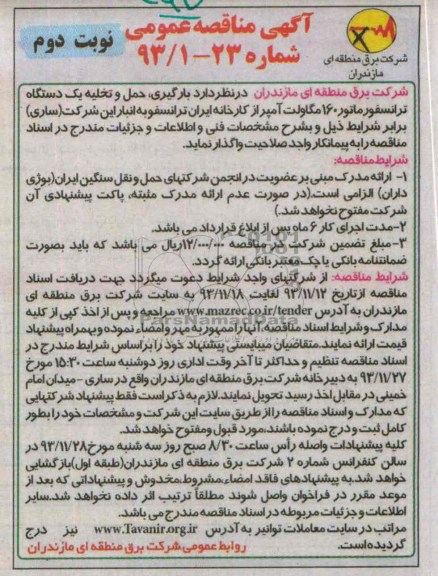 آگهی مناقصه عمومی
شماره ۲۳-۹۳/۱
نوبت دوم
شرکت برق منطقه ای
مازندران
شرکت برق منطقه ای مازندران درنظردارد بارگیری، حمل و تخلیه یک دستگاه
ترانسفورماتور۱۶۰مگاولت آمپر از کارخانه ایران ترانسفو به انبار این شرکت(ساری)
برابر شرایط ذیل و بشرح مشخصات فنی و اطلاعات و جزئیات مندرج در اسناد
مناقصه رابه پیمانکار واجد صلاحیت واگذار نماید.
شرایط مناقصه:
۱- ارائه مدرک مبنی بر عضویت در انجمن شرکتهای حمل و نقل سنگین ایران(بوژی
داران) الزامی است.(در صورت عدم ارائه مدرک مثبته، پاکت پیشنهادی آن
شرکت مفتوح نخواهد شد.)
۲-مدت اجرای کار ۶ ماه پس از ابلاغ قرارداد می باشد.
۳-مبلغ تضمین شرکت در مناقصه ۱۲/۰۰۰/۰۰۰ریال می باشد که باید بصورت
ضمانتنامه بانکی یا چک معتبر بانکی ارائه گردد.
شرایط مناقصه: از شرکتهای واجد شرایط دعوت میگردد جهت دریافت اسناد
مناقصه ازتاریخ ۹۳/۱۱/۱۲ لغایت ۹۳/۱۱/۱۸ به سایت شرکت برق منطقه ای
مازندران به آدرس www.mazrec.co.ir/tender مراجعه و پس از اخذ کپی از کلیه
مدارک و شرایط اسناد مناقصه، آنها را ممهور به مهر و امضاء نموده و بهمراه پیشنهاد
قیمت ارائه نمایند.متقاضیان میبایستی پیشنهاد خود را براساس شرایط مندرج در
اسناد مناقصه تنظیم و حداکثر تا آخر وقت اداری روز دوشنبه ساعت ۱۵:۳۰ مورخ
۹۳/۱۱/۲۷ به دبیرخانه شرکت برق منطقه ای مازندران واقع در ساری -میدان امام
خمینی در مقابل اخذ رسید تحویل نمایند.لازم به ذکر است فقط پیشنهاد شرکتهایی
که مدارک و اسناد مناقصه را از طریق سایت این شرکت و مشخصات خود را بطور
کامل ثبت و درج نموده باشند،مورد قبول و مفتوح خواهد شد.
کلیه پیشنهادات واصله رأس ساعت ۸/۳۰ صبح روز سه شنبه مورخ۹۳/۱۱/۲۸ در
سالن کنفرانس شماره ۲ شرکت برق منطقه ای مازندران(طبقه اول)بازگشایی
خواهد شد.به پیشنهادهای فاقد امضاء،مشروط،مخدوش و پیشنهاداتی که بعد از
موعد مقرر در فراخوان واصل شوند مطلقاً ترتیب اثر داده نخواهد شد.سایر
اطلاعات و جزئیات مربوطه در اسناد مناقصه مندرج می باشد.
مراتب در سایت معاملات توانیر به آدرس www.Tavanir.org.ir نیز درج
گردیده است. روابط عمومی شرکت برق منطقه ای مازندران